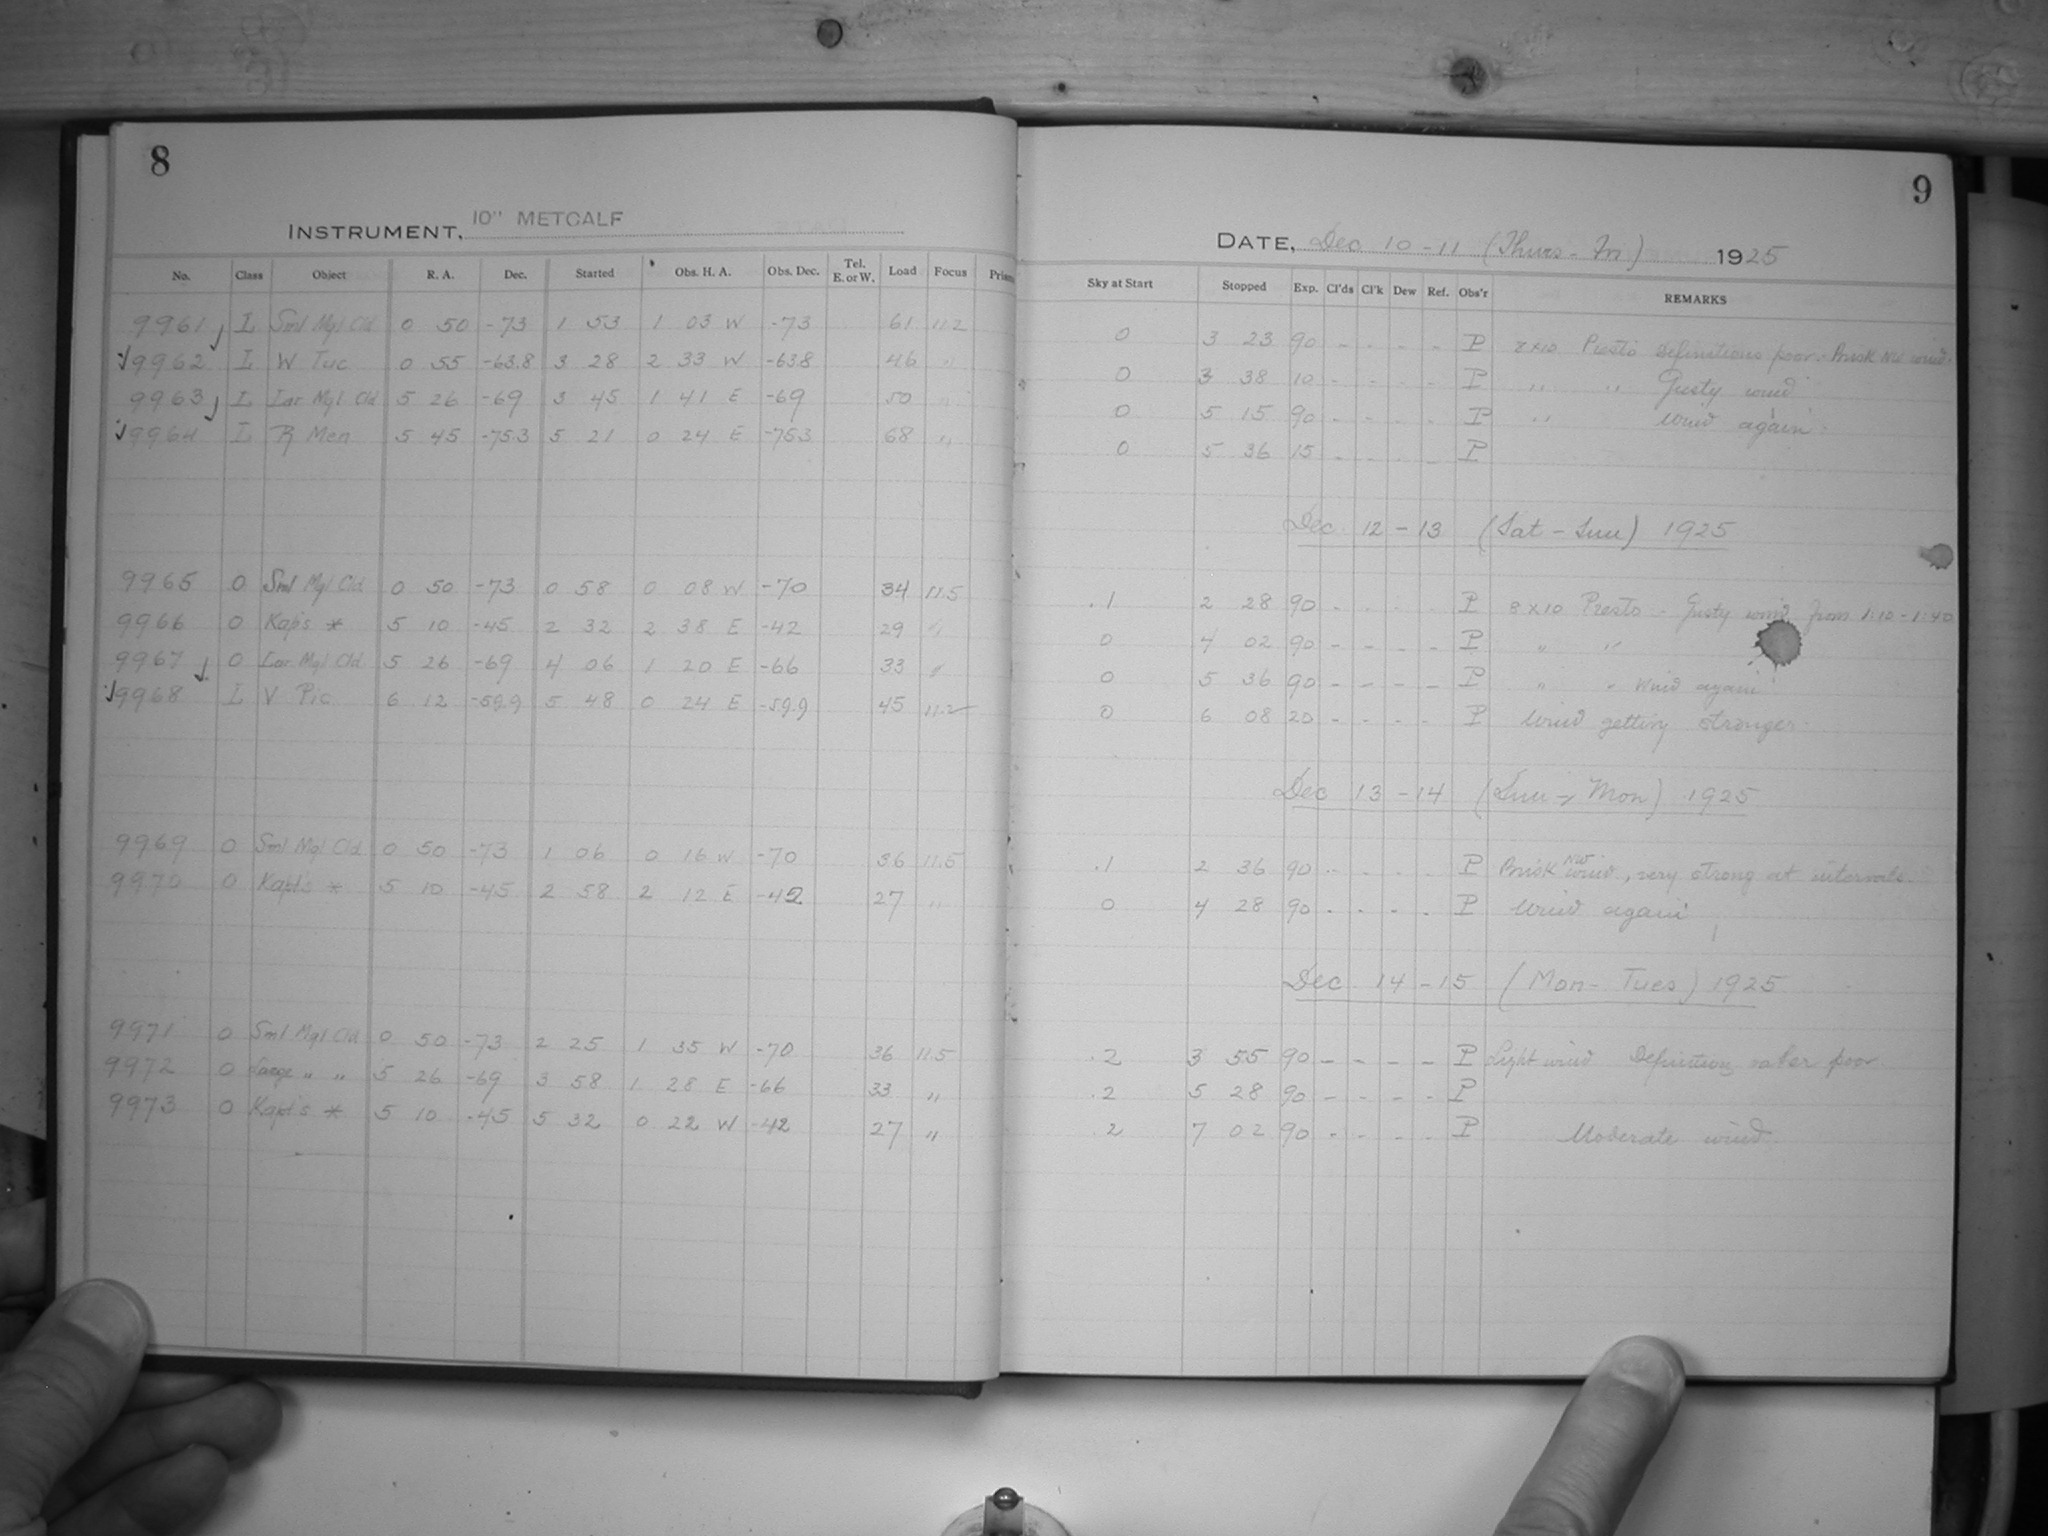 8
INSTRUMENT, 10" METCALF
No. Class Object R. A. Dec. Started Obs. H. A. Obs. Dec. Tel. E. or W. Load Focus
9961 L Sml Mgl Cld 0 50 -73 1 53 1 03 W -73 61 11.2
9962 L W Tuc 0 55 -63.8 3 28 2 33 W -63.8 46 "
9963 L Lar Mgl Cld 5 26 -69 3 45 1 41 E -69 50 "
9964 L R Men 5 45 -75.3 5 21 0 24 E -75.3 68 "
9965 0 Sml Mgl Cld 0 50 -73 0 58 0 08 W -70 34 11.5
9966 0 Kap's * 5 10 -45 2 32 2 38 E -42 29 "
9967 0 Lar Mgl Cld 5 26 -69 4 06 1 20 E -66 33 "
9968 L V Pic 6 12 -59.9 5 48 0 24 E -59.9 45 11.2
9969 0 Sml Mgl Cld 0 50 -73 1 06 0 16 W -70 36 11.5
9970 0 Kapt's * 5 10 -45 2 58 2 12 E -42 27 "
9971 0 Sml Mgl Cld 0 50 -73 2 25 1 35 W -70 36 11.5
9972 0 Large " " 5 26 -69 3 58 1 28 E -66 33 "
9973 0 Kapt's * 5 10 -45 5 32 0 22 W -42 27 "
9
DATE, Dec 10-11 (Thurs-Fri) 1925
Sky at Start Stopped Exp. Cl'ds Cl'k Dew Ref. Obs'r REMARKS
0 3 23 90 - - - - P 8x10 Presto Definitions poor. Brisk NW wind.
0 3 38 10 - - - - P " " Gusty wind
0 5 15 90 - - - - P " wind again.
0 5 36 15 - - - - P
Dec 12-13 (Sat-Sun) 1925
.1 2 28 90 - - - - P 8x10 Presto - Gusty wind from 1:10-1:40
0 4 02 90 - - - - P " "
0 5 36 90 - - - - P " " Wind again
0 6 08 20 - - - - P Wind getting stronger.
Dec 13-14 (Sun-Mon) 1925
.1 2 36 90 - - - - P Brisk NW wind, very strong at intervals.
0 4 28 90 - - - - P Wind again
Dec 14-15 (Mon-Tues) 1925
.2 3 55 90 - - - - P Light wind Definition rather poor.
.2 5 28 90 - - - - P
.2 7 02 90 - - - - P Moderate wind.